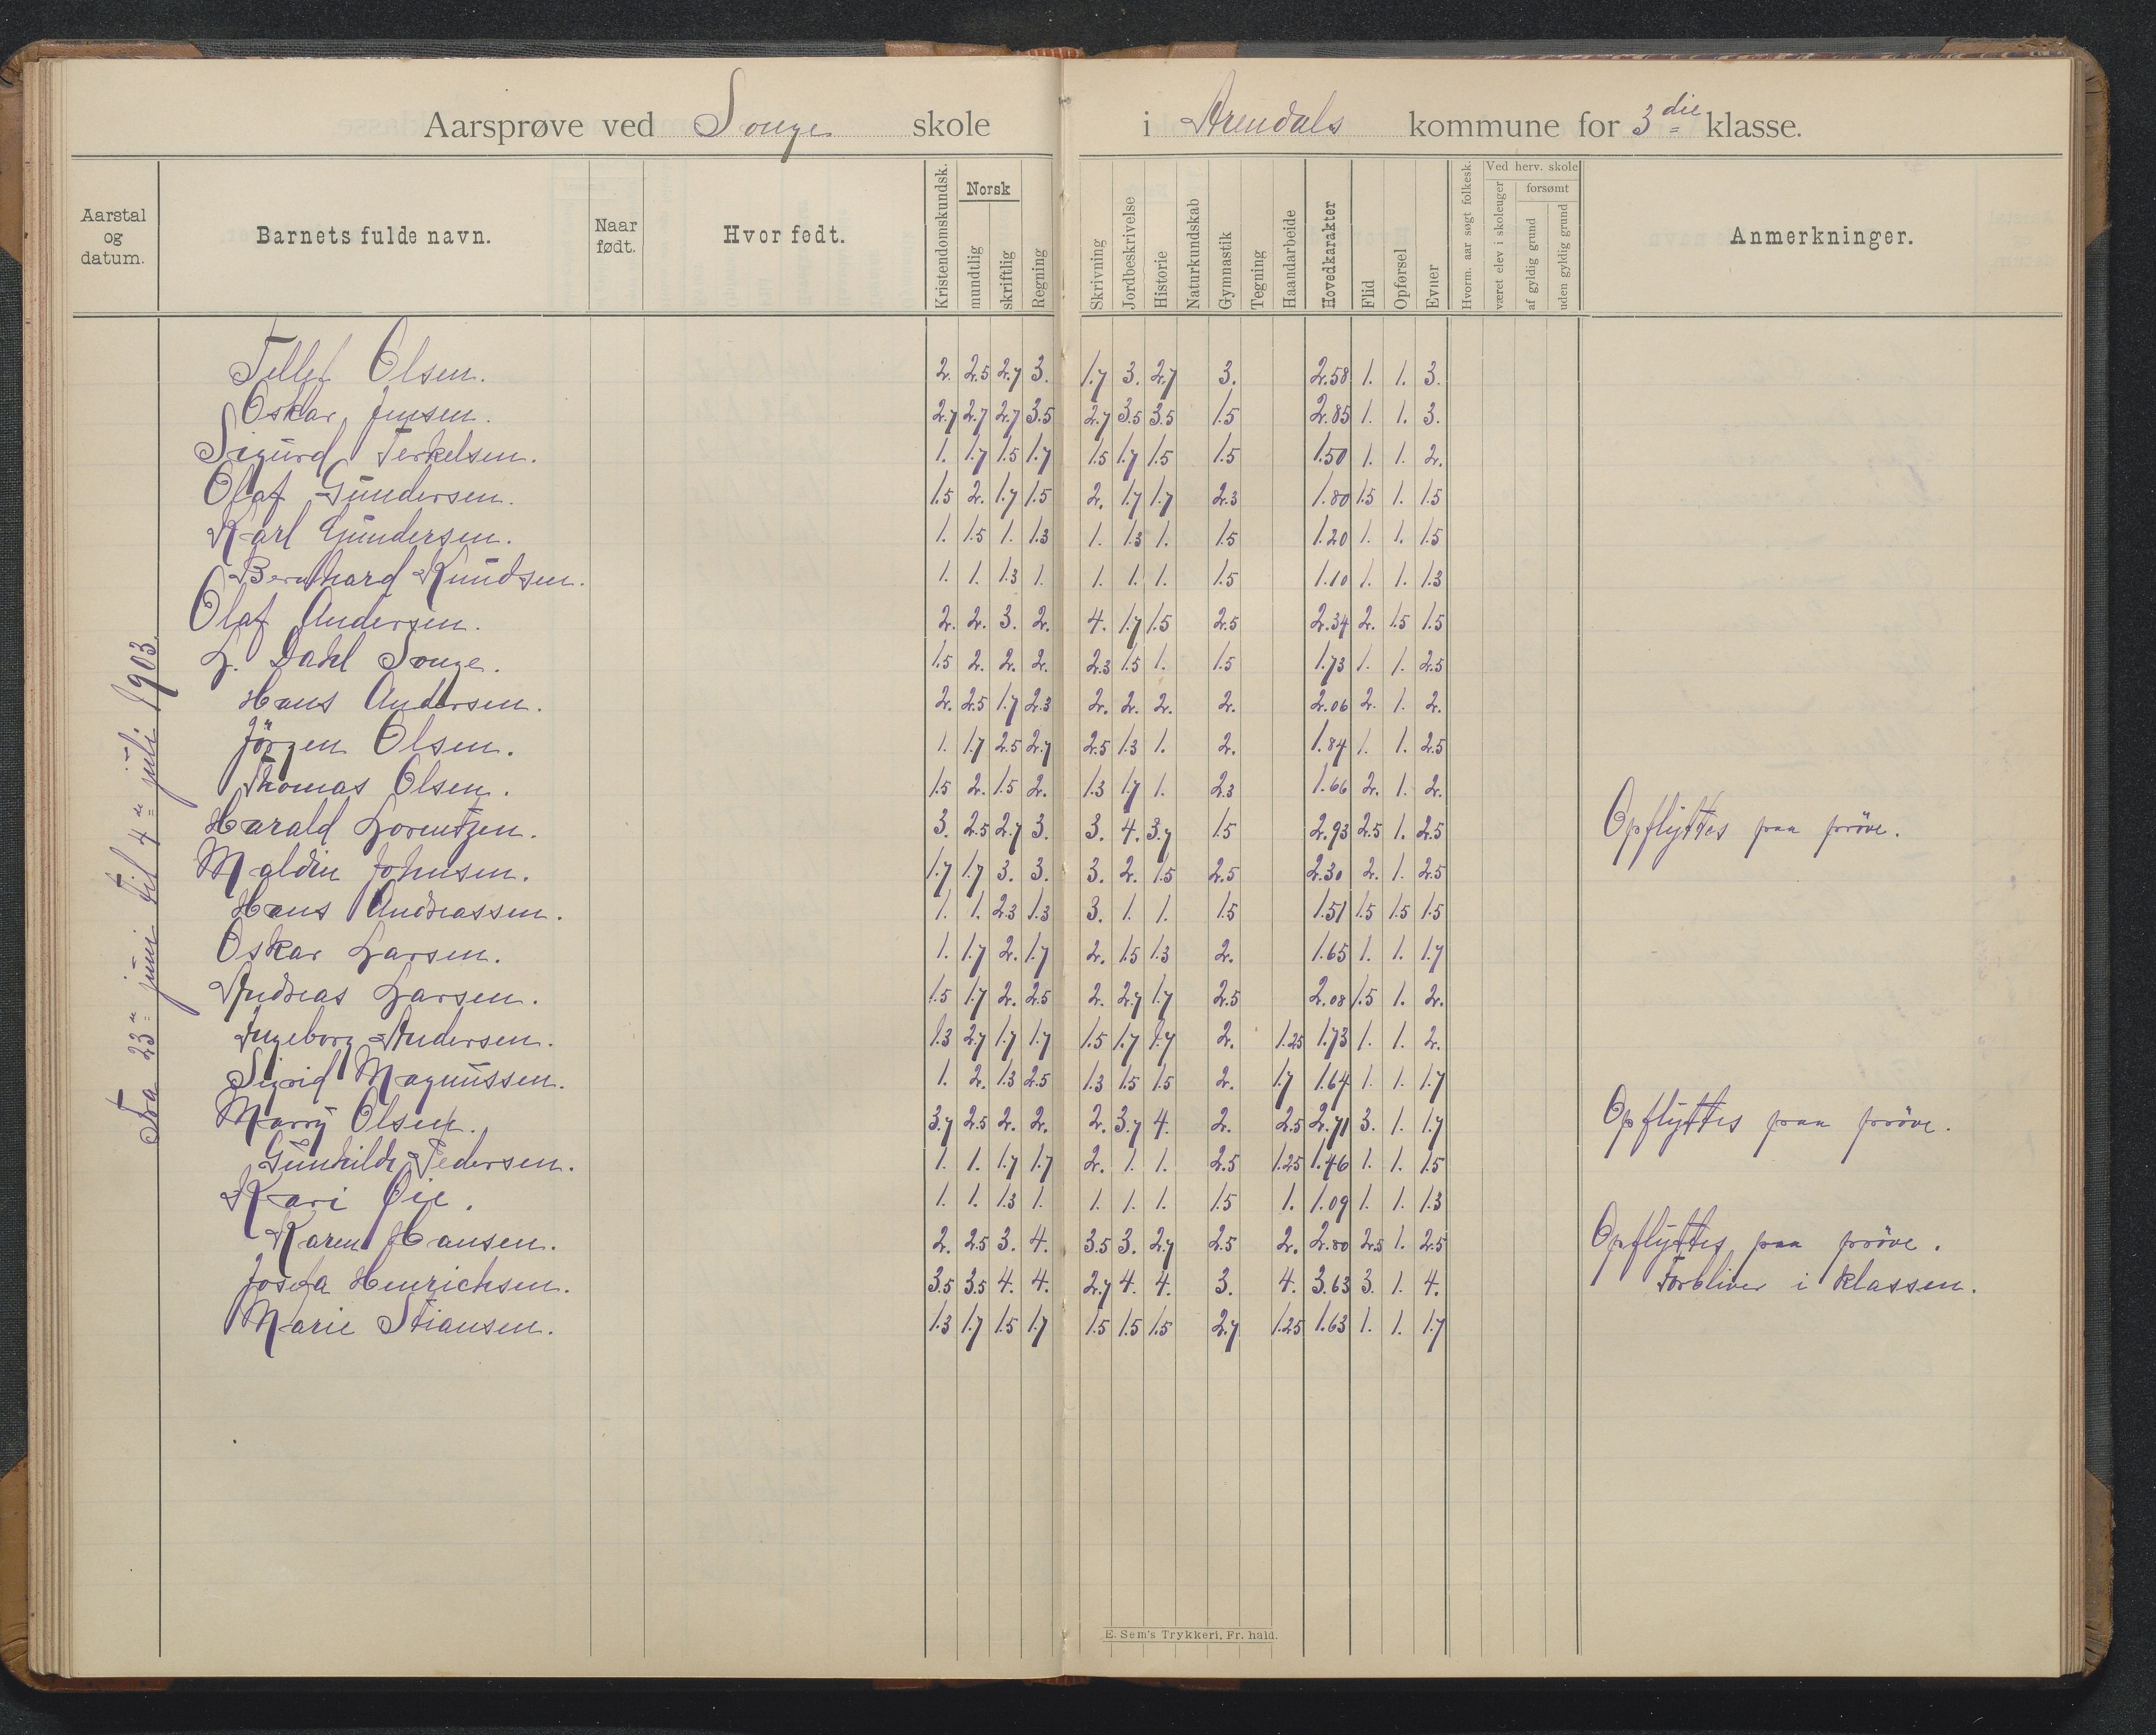 Aarsprøve ved Songe skole i Arendals kommune for 3die klasse.
Aarstal og datum. Barnets fulde navn. Naar født. Hvor født. Kristendomskundsk. Norsk mundtlig skriftlig Regning Skrivning Jordbeskrivelse Historie Naturkundskab Gymnastik Tegning Haandarbeide Hovedkarakter Flid Opførsel Evner Hvorm. aar søgt folkesk. Ved herv. skole været elev i skoleuger forsømt af gyldig grund uden gyldig grund Anmerkninger.
Fra 23de juni til 4de juli 1903.
Tellef Olsen. 2. 2.5 2.7 3. 1.7 3. 2.7 3. 2.58 1. 1. 3.
Oskar Jensen. 2.7 2.7 2.7 3.5 2.7 3.5 3.5 1.5 2.85 1. 1. 3.
Sigurd Terkelsen. 1. 1.7 1.5 1.7 1.5 1.7 1.5 1.5 1.50 1. 1. 2.
Olaf Gundersen. 1.5 2. 1.7 1.5 2. 1.7 1.7 2.3 1.80 1.5 1. 1.5
Karl Gundersen. 1. 1.5 1. 1.3 1. 1.3 1. 1.5 1.20 1. 1. 1.5
Bernhard Knudsen. 1. 1. 1.3 1. 1. 1. 1. 1.5 1.10 1. 1. 1.3
Olaf Andersen. 2. 2. 3. 2. 4. 1.7 1.5 2.5 2.34 2. 1.5 1.5
L. Dahl Songe. 1.5 2. 2. 2. 2.3 1.5 1. 1.5 1.73 1. 1. 2.5
Hans Andersen. 2. 2.5 1.7 2.3 2. 2. 2. 2. 2.06 2. 1. 2.
Jörgen Olsen. 1. 1.7 2.5 2.7 2.5 1.3 1. 2. 1.84 1. 1. 2.5
Thomas Olsen. 1.5 2. 1.5 2. 1.3 1.7 1. 2.3 1.66 2. 1. 2.
Harald Lorentzen. 3. 2.5 2.7 3. 3. 4. 3.7 1.5 2.93 2.5 1. 2.5 Opflyttes paa pröve.
Maldin Johnsen. 1.7 1.7 3. 3. 3. 2. 1.5 2.5 2.30 2. 1. 2.5
Hans Andreassen. 1. 1. 2.3 1.3 3. 1. 1. 1.5 1.51 1.5 1.5 1.5
Oskar Larsen. 1. 1.7 2. 1.7 2. 1.5 1.3 2. 1.65 1. 1. 1.7
Andreas Larsen. 1.5 1.7 2. 2.5 2. 2.7 1.7 2.5 2.08 1.5 1. 2.
Ingeborg Andersen. 1.3 2.7 1.7 1.7 1.5 1.7 1.7 2. 1.25 1.73 1. 1. 2.
Sigrid Magnussen. 1. 2. 1.3 2.5 1.3 1.5 1.5 2. 1.7 1.64 1. 1. 1.7
Marry Olsen. 3.7 2.5 2. 2. 2. 3.7 4. 2. 2.5 2.71 3. 1. 1.7 Opflyttes paa pröve.
Gunhilde Pedersen. 1. 1. 1.7 1.7 2. 1. 1. 2.5 1.25 1.46 1. 1. 1.5
Kari Öie. 1. 1. 1.3 1. 1. 1. 1. 1.5 1. 1.09 1. 1. 1.3
Karen Hansen. 2. 2.5 3. 4. 3.5 3. 2.7 2.5 2. 2.80 2.5 1. 2.5 Opflyttes paa pröve.
Josefa Henrichsen. 3.5 3.5 4. 4. 2.7 4. 4. 3. 4. 3.63 3. 1. 4. Forbliver i klassen.
Marie Stiansen. 1.3 1.7 1.5 1.7 1.5 1.5 1.5 2.7 1.25 1.63 1. 1. 1.7
E. Sem's Trykkeri, Fr. hald.